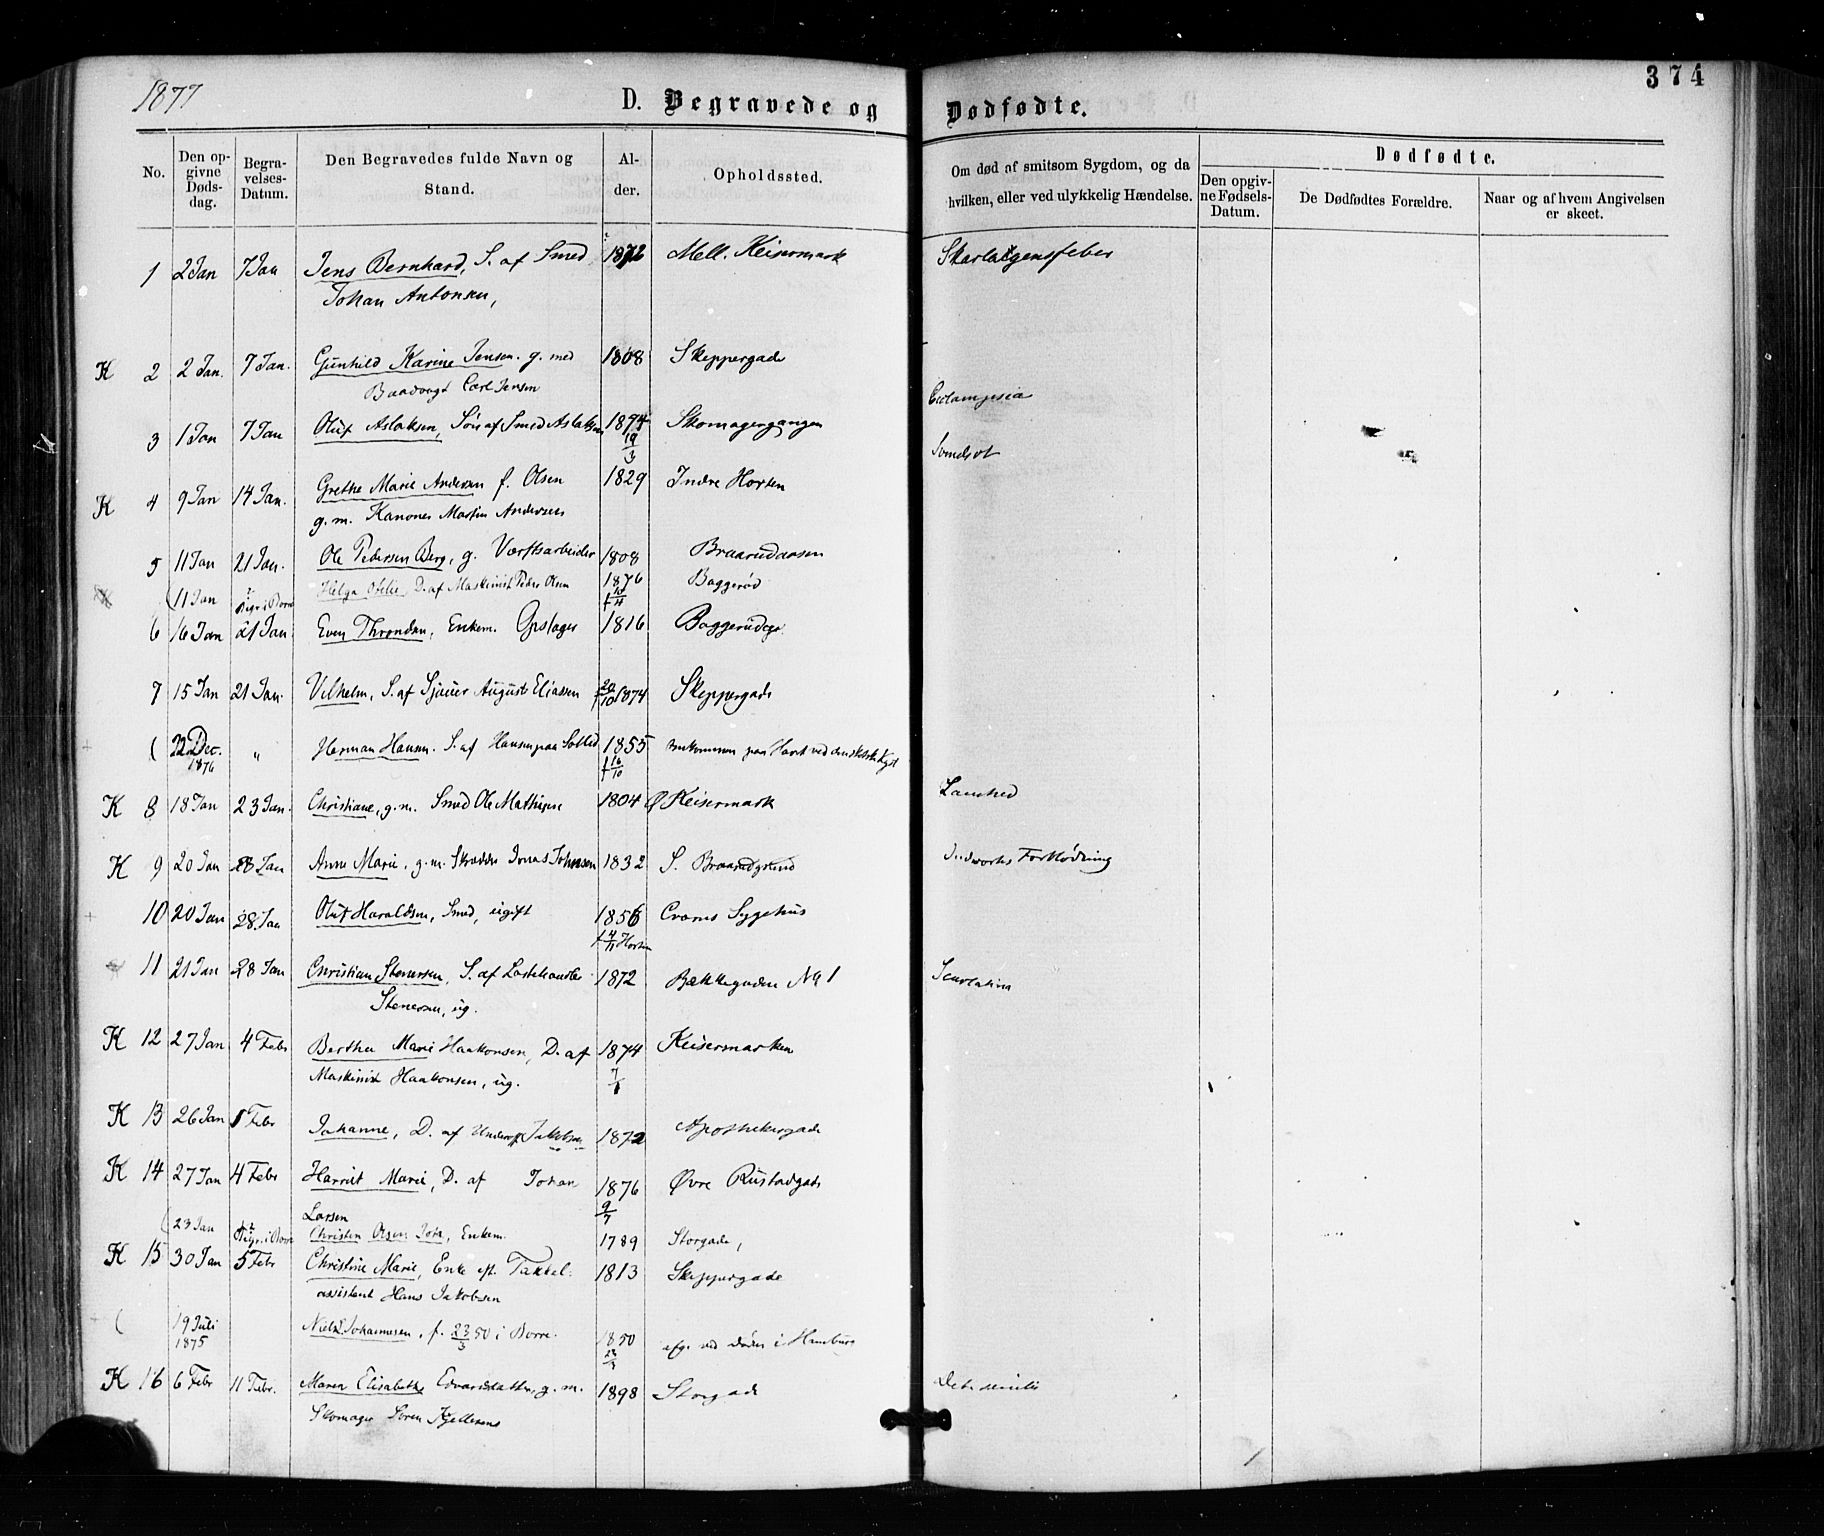 1877
374
D. Begravede og Dødfødte.
No.
Den opgivne Dødsdag.
Begravelses-Datum.
Den Begravedes fulde Navn og Stand.
Alder.
Opholdssted.
Om død af smitsom Sygdom, og da hvilken, eller ved ulykkelig Hændelse.
Dødfødte.
Den opgivne Fødsels-Datum.
De Dødfødtes Forældre.
Naar og af hvem Angivelsen er skeet.
1 2 Jan 7 Jan Jens Bernhard, S. af Smed 1872 Mell. Keisermark Skarlagensfeber
Johan Antonsen,
K 2 2 Jan. 7 Jan. Gunhild Karine Jensen. g. med 1808 Skeppergade
Baadvagt Carl Jensen
Eclampsia
3 1 Jan 7 Jan Oluf Aslaksen, Søn af Smed Aslaksen 1874 Skomagergangen
19/3
K 4 9 Jan 14 Jan. Grethe Marie Andersen f. Olsen 1829 Indre Horten
g. m. Kanoner Martin Andersen
5 11 Jan 21 Jan. Ole Pedersen Berg, g. Værftsarbeider 1808 Braarudaasen
11 Jan Begr. i Borre Helga Otelie, D. af Maskinist Peder Olsen 1876 Baggerød
6 16 Jan 21 Jan Even Thronsen, Enkem. 1816
7 15 Jan 21 Jan. Vilhelm, S. af August Eliassen 20/10 1874 Skeppergade
22 Dec. 1876 " Herman Hansen. S. af Hansen paa 1855 omkommen paa Havet ved den Kyst
16/10
K 8 18 Jan 23 Jan. Christiane, g. m. Smed Ole Mathisen 1804 Ø Keisermark
K 9 20 Jan 28 Jan Anne Marie, g. m. Skrædder Jonas Johnsen 1832 S. Braarudgrund Indvortes Forblødning
10 20 Jan 28 Jan Oluf Haraldsen, Smed, ugift 1856 Sygehus
4/11 Horten
11 21 Jan 28 Jan Christian Stenersen, S. af Lastehandler 1872 Bækkegaden No 1 Scarlatina
Stenersen, ug.
K 12 27 Jan 4 Febr Berthe Marie Haakonsen, D. af 1874 Keisermarken
Maskinist Haakonsen, ug.
K 13 26 Jan 1 Febr Johanne, D. af Underoff. Jakobsen 1872 Apothekergade
K 14 27 Jan 4 Febr Harriet Marie, D. af Johan 1876 Øvre Rustadgade
9/7
Larsen
23 Jan Begr. i Borre Christen Olsen, Enkem. 1789 Storgade,
K 15 30 Jan 5 Febr Christine Marie, Enke eft. Takkel- 1813 Skeppergade
assistent Hans Jakobsen
19 Juli 1875 Niels Johannesen, f. 23/3 50 i Borre. 1850 afg. ved Døden i Hamburg
K 16 6 Febr 11 Febr. Maren Elisabethe Edvardsdatter, g. m. 1898 Storgade
Skomager Søren